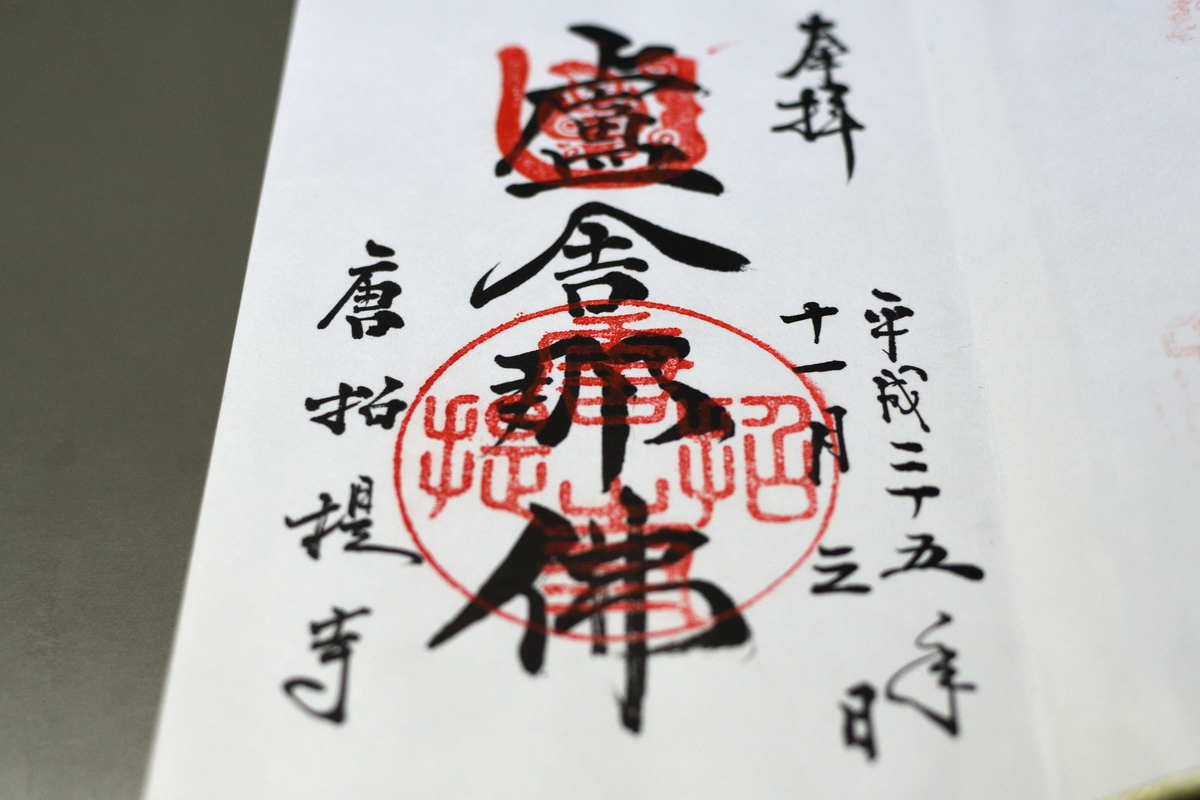 奉拝
平成二十五年
十一月三日
盧舎那佛
唐招提寺